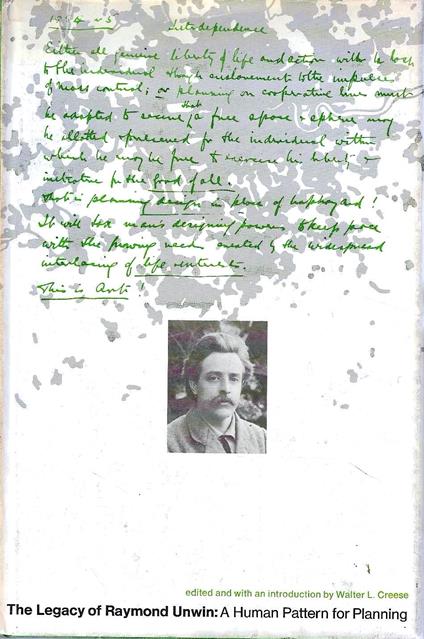 1934-5
Interdependence
Either all genuine liberty of life and action will be lost
to the individual through enslavement to the impulses
of mass control; or planning on cooperative lines must
be adapted to secure that a free space & sphere may
be allotted & preserved for the individual within
which he may be free to exercise his liberty &
initiative for the good of all.
That is planning design in place of haphazard!
It will tax man's designing powers to keep pace
with the growing needs created by the widespread
interlacing of life ventures.
This is Art!
edited and with an introduction by Walter L. Creese
The Legacy of Raymond Unwin: A Human Pattern for Planning